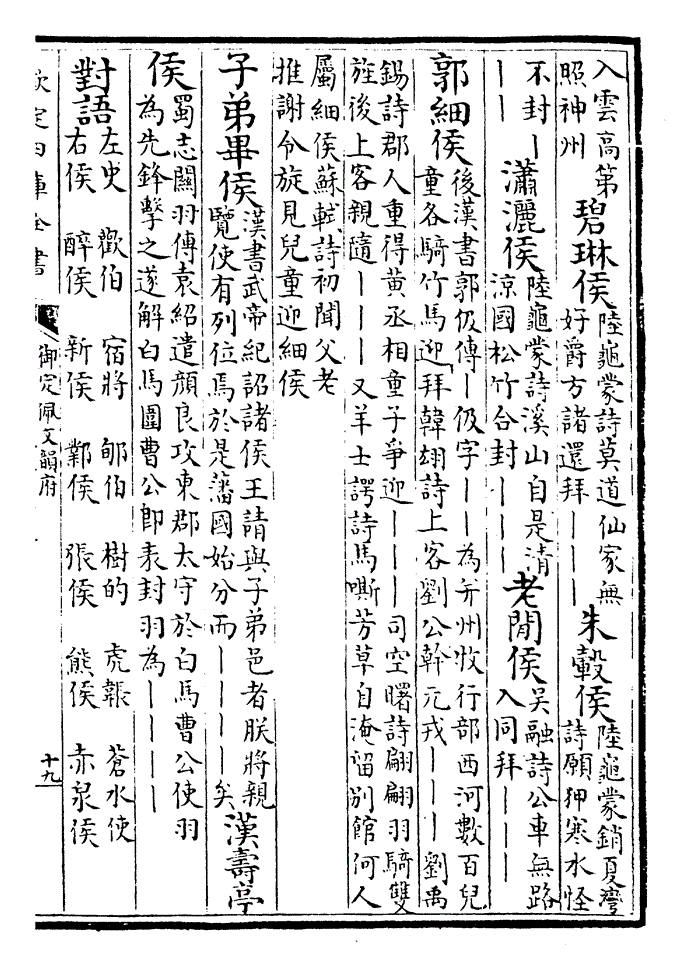 入雲高第
照神州
碧琳侯
陸龜蒙詩莫道仙家無
好爵方諸還拜丨丨丨
朱轂侯
陸龜蒙銷夏灣
詩願狎寒水怪
不封丨
丨丨
瀟灑侯
陸龜蒙詩溪山自是清
涼國松竹合封丨丨丨
老閒侯
吳融詩公車無路
入同拜丨丨丨
郭細侯
後漢書郭伋傳丨伋字丨丨為并州牧行部西河數百兒
童各騎竹馬迎拜韓翃詩上客劉公幹元戎丨丨丨劉禹
錫詩郡人重得黃丞相童子爭迎丨丨丨司空曙詩翩翩羽騎雙
旌後上客親隨丨丨丨又羊士諤詩馬嘶芳草自淹留別館何人
屬細侯蘇軾詩初聞父老
推謝令旋見兒童迎細侯
子弟畢侯
漢書武帝紀詔諸侯王請與子弟邑者朕將親
覽使有列位焉於是藩國始分而丨丨丨丨矣
漢壽亭
侯
蜀志關羽傳袁紹遣顏良攻東郡太守於白馬曹公使羽
為先鋒擊之遂解白馬圍曹公卽表封羽為丨丨丨丨
對語
左史 歡伯 宿將 郇伯 樹的 虎韔 蒼水使
右侯 醉侯 新侯 酇侯 張侯 熊侯 赤泉侯
欽定四庫全書
御定佩文韻府
十九